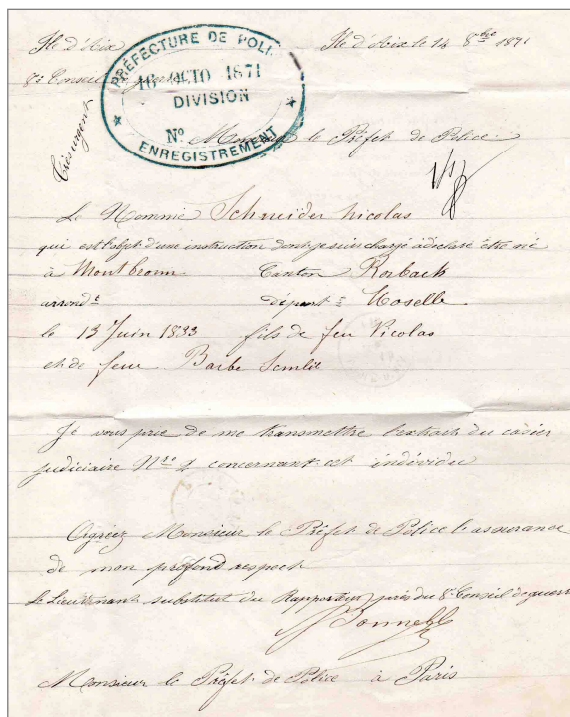 Ile d'Aix
Ile d'Aix le 14 8bre 1871
8e Conseil de guerre
PRÉFECTURE DE POLI
16 OCTO 1871
DIVISION
No
ENREGISTREMENT
Très urgent
Monsieur le Préfet de Police
Le Nommé Schneider Nicolas
qui est l'objet d'une instruction dont je suis chargé a déclaré être né
à Montbronn Canton Rorbach
arrondt départt Moselle
le 13 Juin 1833 fils de feu Nicolas
et de feue Barbe
Je vous prie de me transmettre l'extrait du casier
judiciaire No 2 concernant cet individu
Agréez Monsieur le Préfet de Police l'assurance
de mon profond respect
Le Lieutenant substitut du Rapporteur près du 8e Conseil de guerre
Monsieur le Préfet de Police à Paris